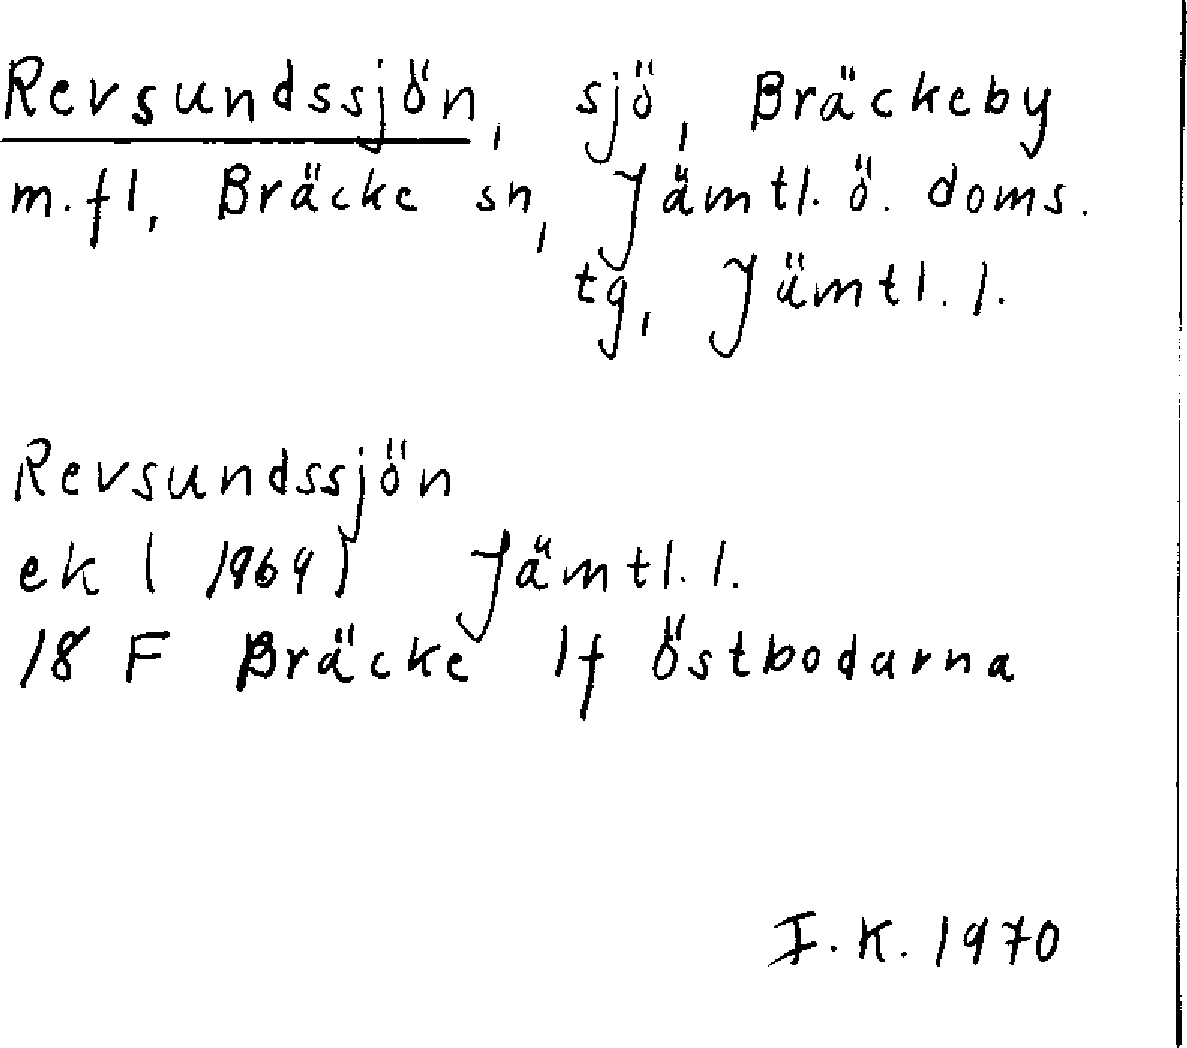 Revsundssjön, sjö, Bräckeby
m.fl, Bräcke sn, Jämtl. ö. doms.
tg, Jämtl. l.
Revsundssjön
ek (1969) Jämtl. l.
18 F Bräcke 1f Östbodarna
I.K. 1970